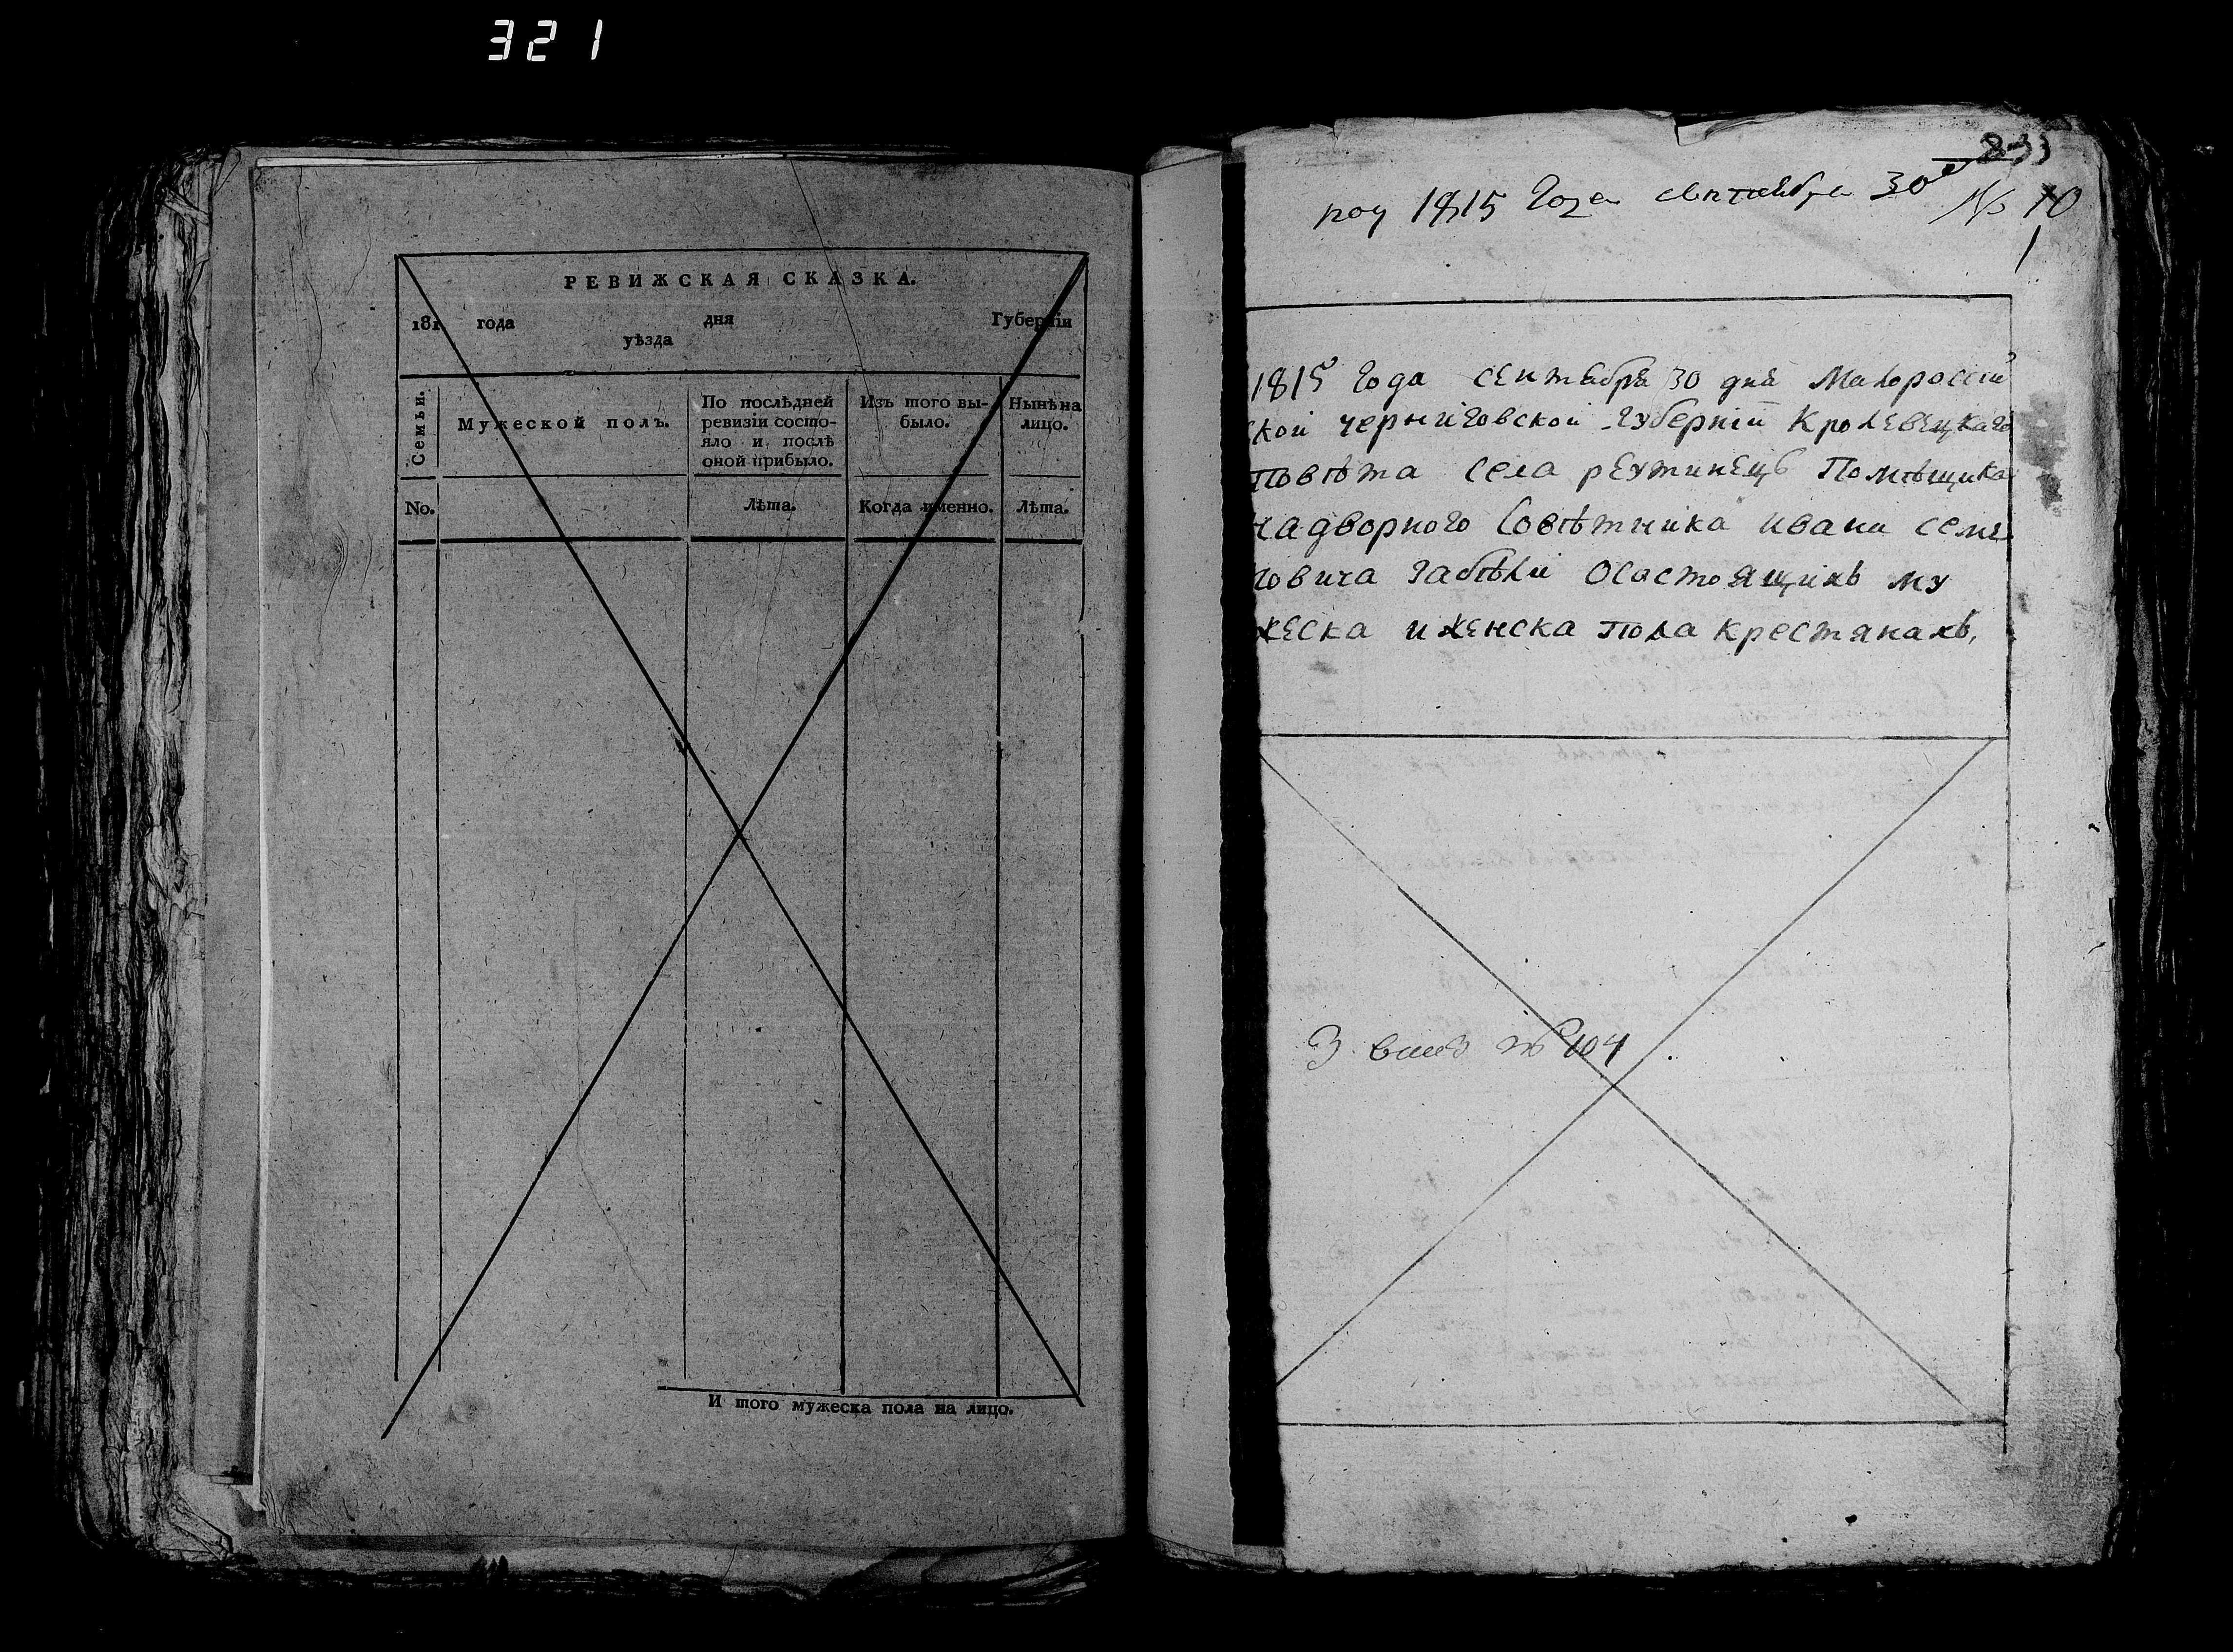 321
РЕВИЖСКАЯ СКАЗКА.
181 года дня Губернїи
уѣзда
Семьи.
Мужеской полъ.
По послѣдней
ревизїи состо-
яло и послѣ
оной прибыло.
Изъ того вы-
было.
Нынѣ на
лицо.
No.
Лѣта.
Когда именно.
Лѣта.
И того мужеска пола на лицо.
833
1815 Года сентября 30
№ 10
1
1815 Года сентября 30 дня Малоросій
ской черниговской губернїи Кролевецкаго
повѣта села реутинецъ Помѣщика
надворного Совѣтника ивана семе
новича Забѣли Осостоящихъ му
жеска и женска пола крестянахъ,
№ 104